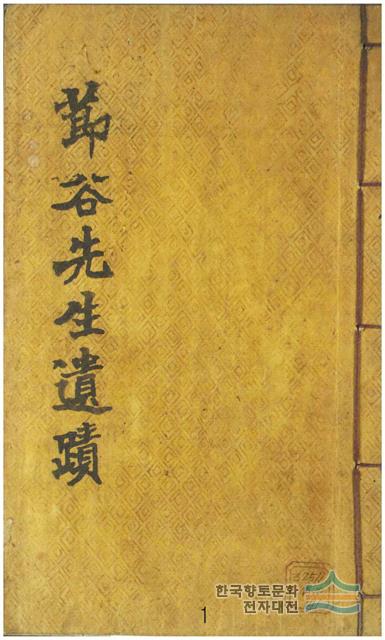 莭谷先生遺蹟
1
한국향토문화
전자대전